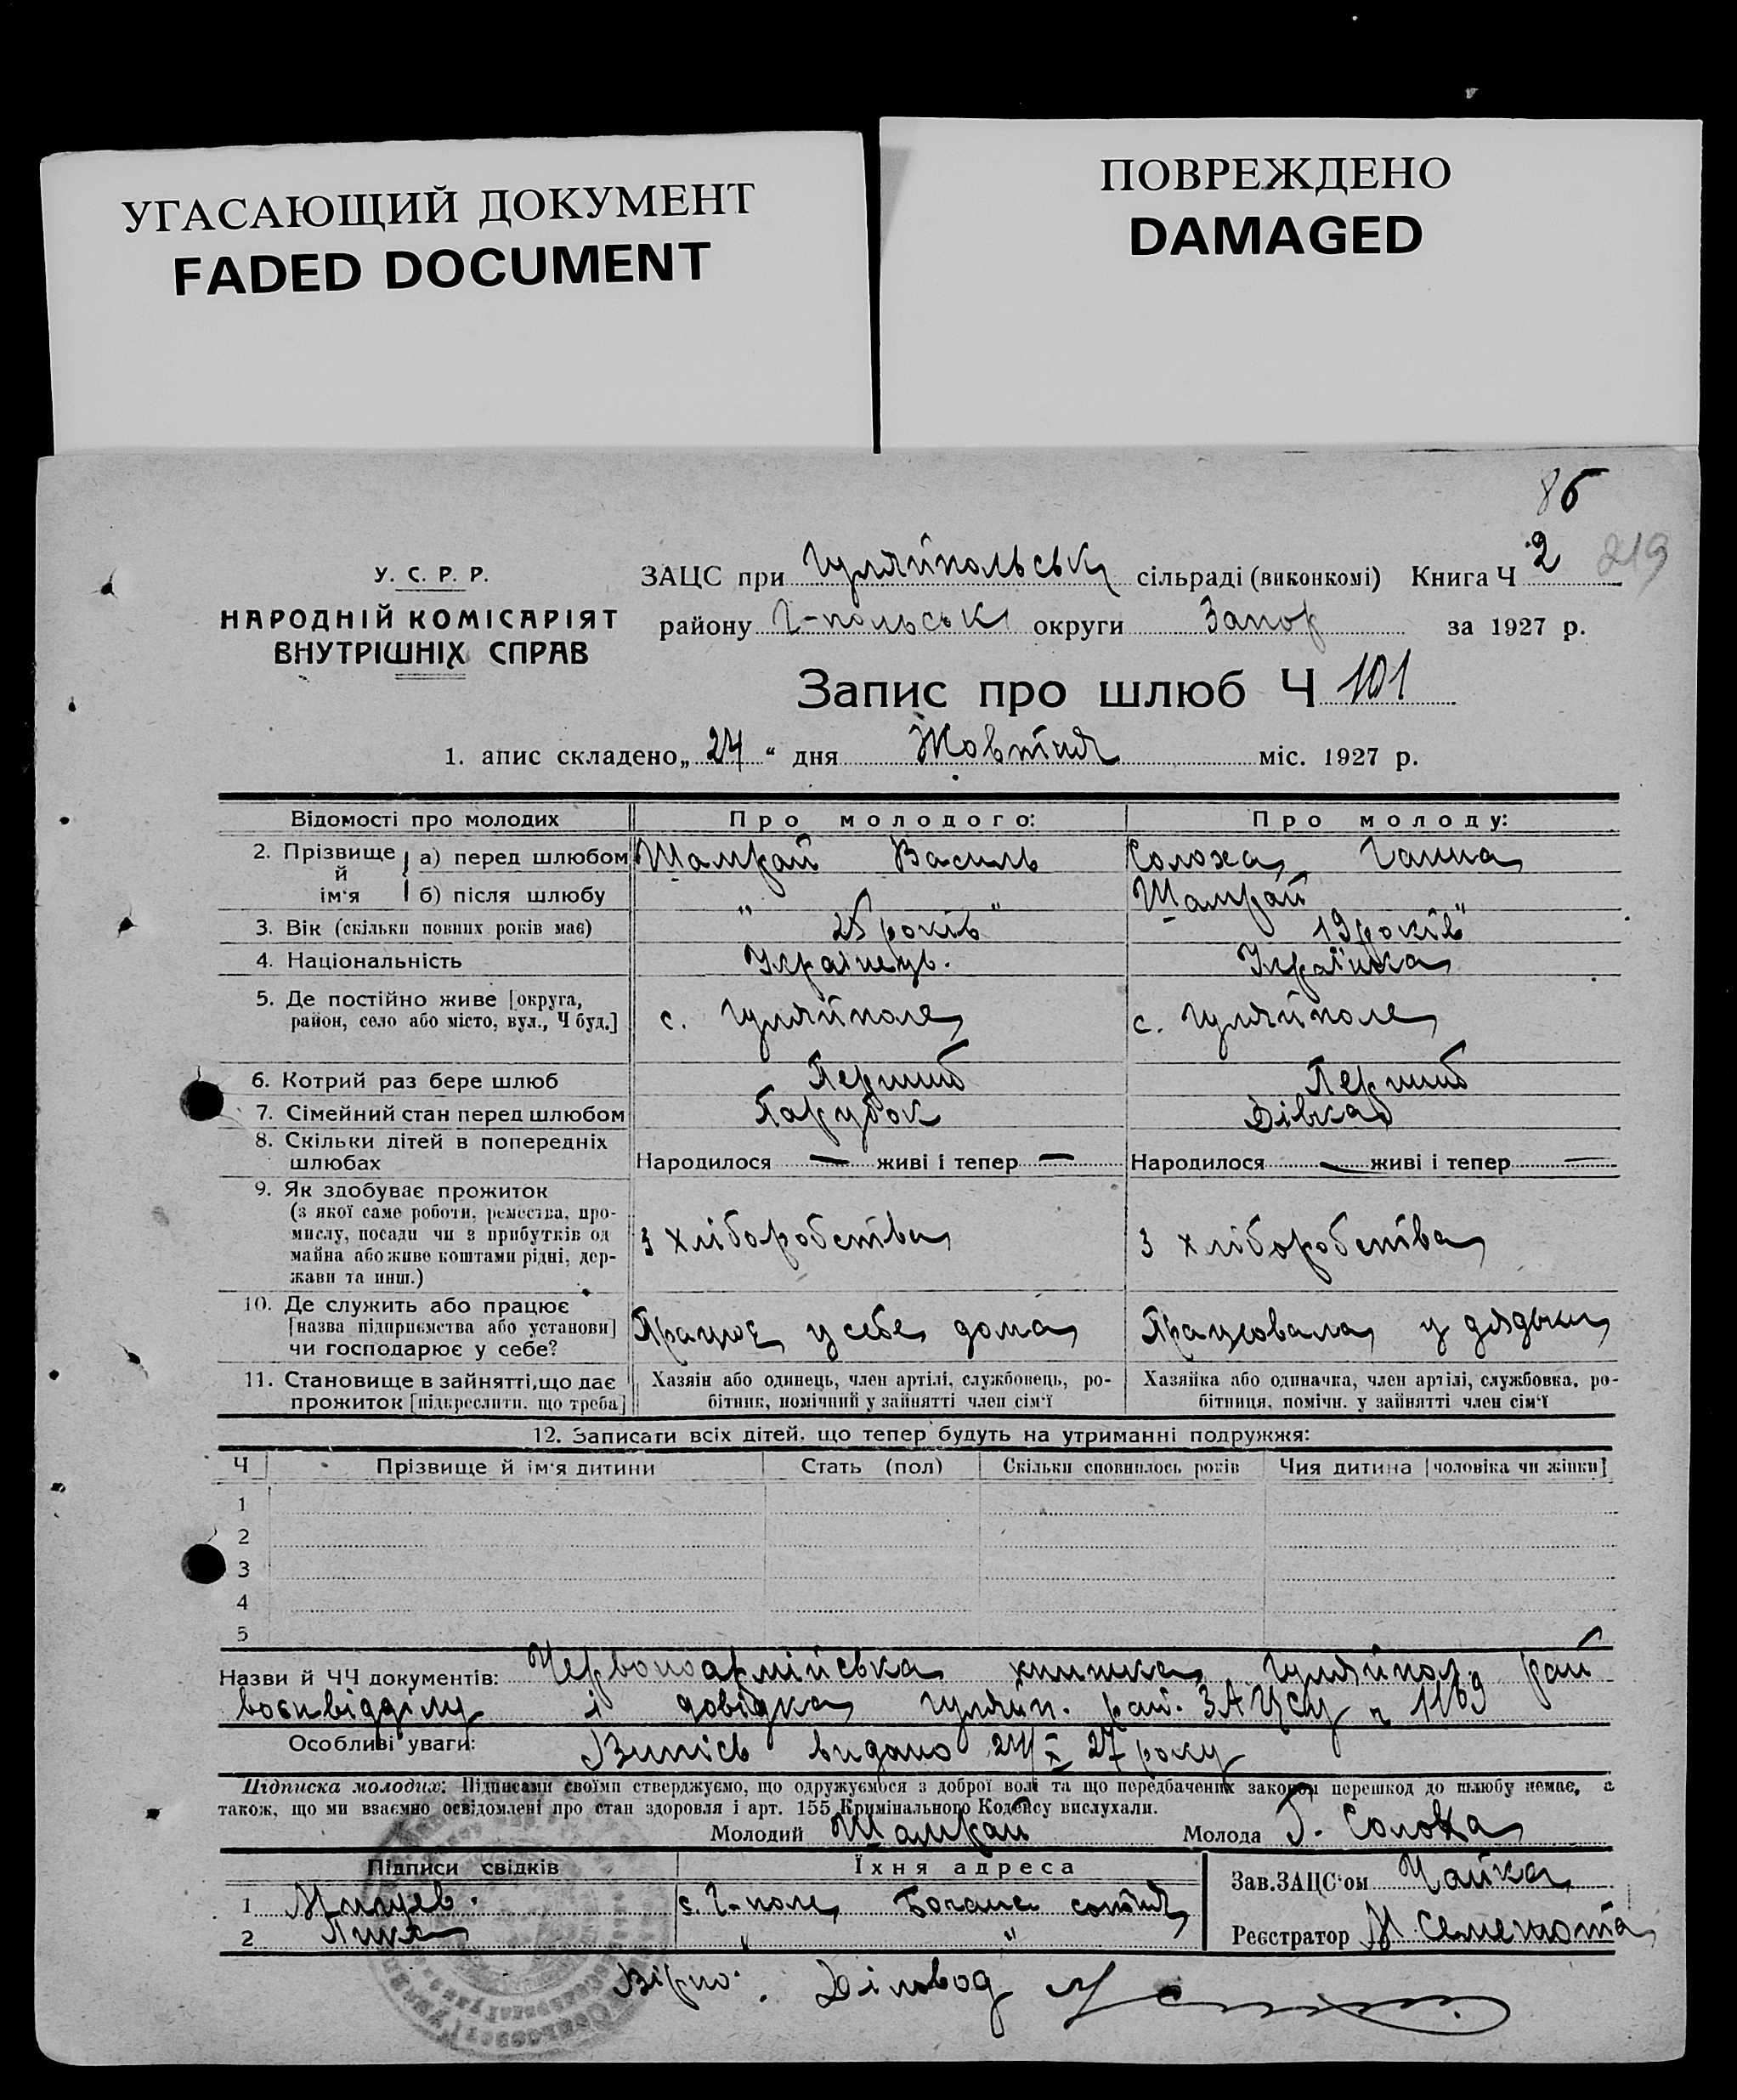 УГАСАЮЩИЙ ДОКУМЕНТ
FADED DOCUMENT
ПОВРЕЖДЕНО
DAMAGED
86
219
У. С. Р. Р.
НАРОДНІЙ КОМІСАРІЯТ
ВНУТРІШНІХ СПРАВ
ЗАЦС при Гуляйпольськ сільраді (виконкомі) Книга Ч 2
району Г-польськ округи Запор за 1927 р.
Запис про шлюб Ч 101
1. апис складено „24“ дня Жовтня міс. 1927 р.
Відомості про молодих Про молодого: Про молоду:
2. Прізвище й ім'я а) перед шлюбом Шамрай Василь Солоха Ганна
б) після шлюбу " " Шамрай "
3. Вік (скільки повних років має) 25 років 19 років
4. Національність Українець. Українка
5. Де постійно живе [округа, район, село або місто, вул., Ч буд.] с. Гуляйполе с. Гуляйполе
6. Котрий раз бере шлюб Перший Перший
7. Сімейний стан перед шлюбом Парубок Дівка
8. Скільки дітей в попередніх шлюбах Народилося — живі і тепер — Народилося — живі і тепер —
9. Як здобуває прожиток
(з якої саме роботи, ремества, про-
мислу, посади чи з прибутків од
майна або живе коштами рідні, дер-
жави та инш.) З хліборобства З хліборобства
10. Де служить або працює
[назва підприємства або установи]
чи господарює у себе? Працює у себе дома Працювала у дядьки
11. Становище в зайнятті, що дає
прожиток [підкреслити, що треба]
Хазяін або одинець, член артілі, службовець, ро-
бітник, помічний у зайнятті член сім'ї
Хазяйка або одиначка, член артілі, службовка, ро-
бітниця, помічн. у зайнятті член сім'ї
12. Записати всіх дітей, що тепер будуть на утриманні подружжя:
Ч Прізвище й ім'я дитини Стать (пол) Скільки сповнилось років Чия дитина [чоловіка чи жінки]
1
2
3
4
5
Назви й ЧЧ документів: Червоноармійська книжка Гуляйпол. рай
воєнвідділу і довідка Гуляйп. рай. ЗАЦСу 1169
Особливі уваги: Випісь видано 24/X 27 року
Підписка молодих: Підписами своїми стверджуємо, що одружуємося з доброї волі та що передбачених законом перешкод до шлюбу немає, а
також, що ми взаємно освідомлені про стан здоровля і арт. 155 Кримінального Кодексу вислухали.
Молодий Шамрай Молода Г. Солоха
Підписи свідків Їхня адреса
1 с. Г-поле сотня
2 " "
Зав. ЗАЦС'ом Чайка
Реєстратор Семенюта
Вірно: Діловод